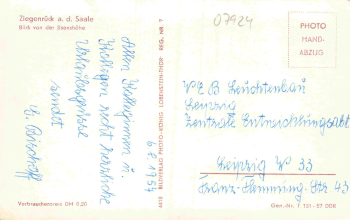 Ziegenrück a. d. Saale
Blick von der Saanhöhe
07924
PHOTO
HAND-
ABZUG
6.8.1957
Allen Kolleginnen u.
Kollegen recht herzliche
Urlaubsgrüße
sendet
VEB Leuchtenbau
Leipzig
Zentrale Entwicklungsabt
Leipzig W 33
Franz-Flemming-Str. 43
4418 BILDVERLAG PHOTO-KÖNIG LOBENSTEIN-THÜR. REG. NR. 7
Verbraucherpreis DM 0,20
Gen.-Nr. T 131 - 57 DDR